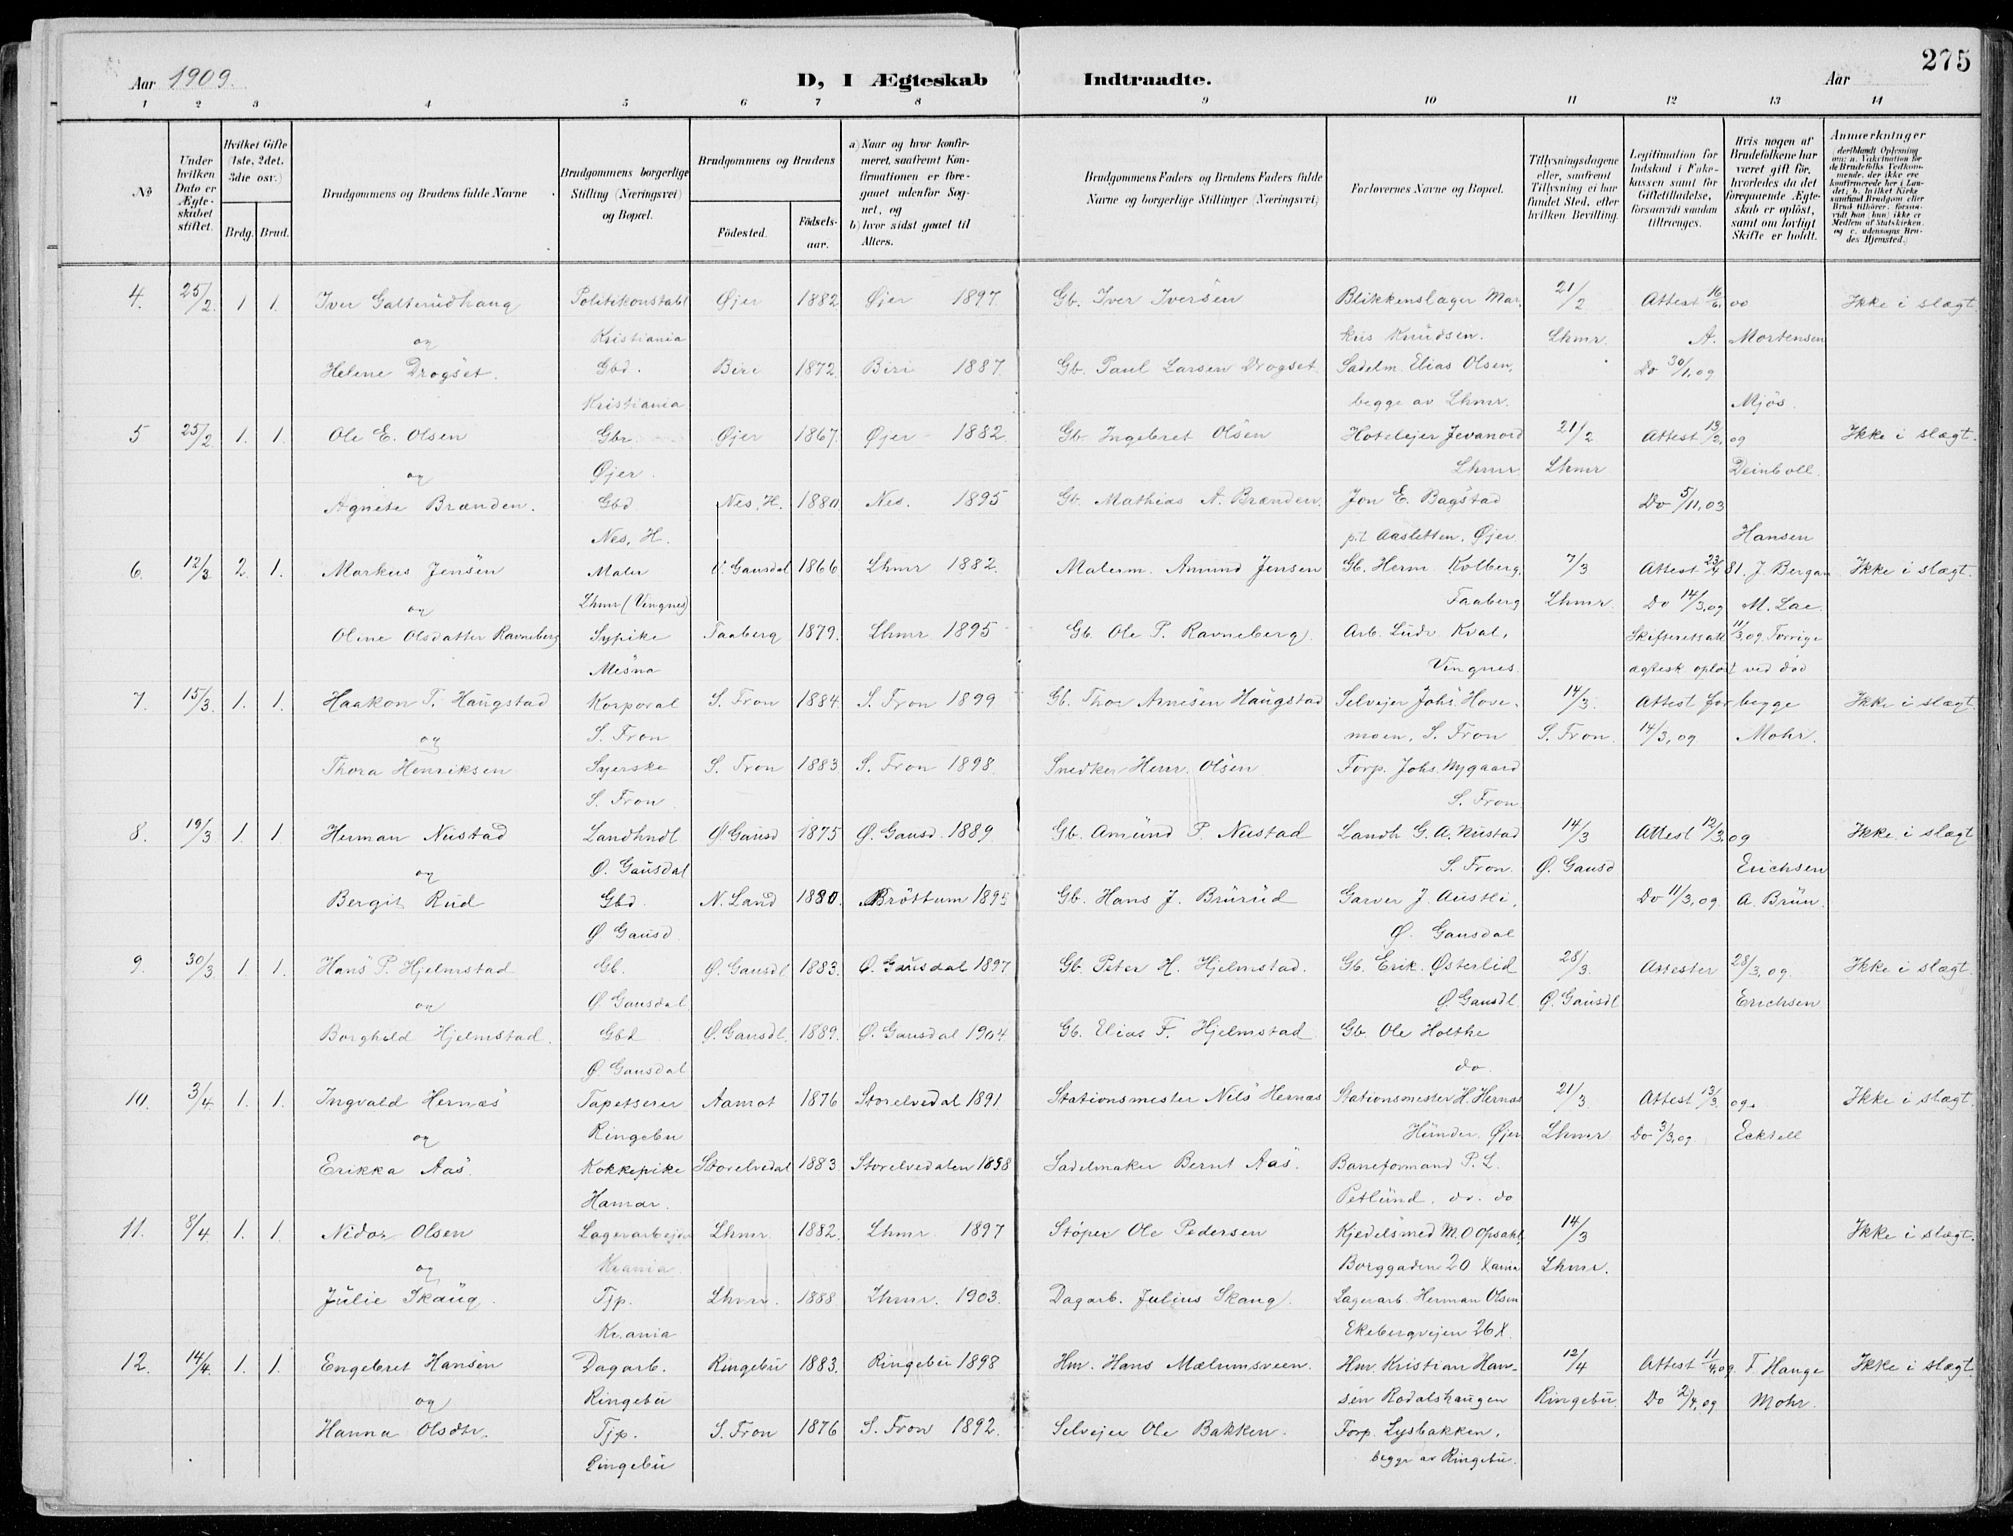 275
Aar 1909. D, I Ægteskab Indtraadte. Aar
1 2 3 4 5 6 7 8 9 10 11 12 13 14
No
Under hvilken Dato er Ægteskabet stiftet.
Hvilket Gifte (1ste, 2det. 3die osv.)
Brdg. Brud.
Brudgommens og Brudens fulde Navne
Brudgommens borgerlige Stilling (Næringsvei) og Bopæl.
Brudgommens og Brudens
Fødested. Fødselsaar.
a) Naar og hvor konfirmeret, saafremt Konfirmationen er foregaaet udenfor Sognet, og
b) hvor sidst gaaet til Alters.
Brudgommens Faders og Brudens Faders fulde Navne og borgerlige Stillinger (Næringsvei)
Forlovernes Navne og Bopæl.
Tillysningsdagene eller, saafremt Tillysning ei har fundet Sted, efter hvilken Bevilling.
Legitimation for Indskud i Enkekassen samt for Giftetilladelse, forsaavidt saadan tiltrænges.
Hvis nogen af Brudefolkene har været gift før, hvorledes da det foregaaende Ægteskab er opløst, samt om lovligt Skifte er holdt.
Anmærkninger
deriblandt Oplysning om: a. Vaksination for de Brudefolks Vedkommende, der ikke ere konfirmerede her i Landet; b. hvilket Kirkesamfund Brudgom eller Brud tilhører, forsaavidt han (hun) ikke er Medlem af Statskirken, og c. udensogns Brudes Hjemsted.)
4. 25/2. 1 1. Iver Galterudhaug Politikonstabl Øjer 1882 Øjer 1897. Gb. Iver Iversen Blikkenslager Mar- 21/2 Attest 16/6. 00 Ikke i slægt
og Kristiania kus Knudsen. Lhmr. A. Mortensen
Helene Drogset. Gbd. Biri 1872. Biri 1887. Gb. Paul Larsen Drogset Sadelm. Elias Olsen, Do 30/1, 09
Kristiania begge av Lhmr. Mjøs.
5 25/2 1. 1. Ole E. Olsen Gbr. Øjer 1867. Øjer 1882. Gb. Ingebret Olsen Hotelejer Jevanord 21/2 Attest 13/2, 09 Ikke i slægt.
og Øjer. Lhmr Lhmr Deinboll.
Agnete Brænden. Gbd Nes, H. 1880 Nes. 1895 Gb. Mathias A. Brænden. Jon E. Bagstad Do 5/11, 03
Nes, H. p.t. Aasletten, Øjer Hansen
6. 12/3 2. 1. Markus Jensen Maler V. Gausdal 1866 Lhmr 1882. Malerm. Amund Jensen Gb. Herm Kolberg, 7/3 Attest 23/4 81. J. Bergan Ikke i slægt.
og Lhmr (Vingnes) Faaberg Lhmr. Do 14/3, 09 M. Lae.
Oline Olsdatter Ravneberg Sypike Faaberg 1879. Lhmr 1895 Gb. Ole P. Ravneberg. Arb. Ludv. Kval, Skifteretsatt 11/3, 09. Forrige
Mesna Vingnes. ægtesk opløst ved død
7. 15/3. 1. 1. Haakon T. Haugstad Korporal S. Fron 1884. S. Fron 1899 Gb. Thor Arnesen Haugstad Selvejer Johs. Hove- 14/3. Attest for begge Ikke i slægt.
og S. Fron moen, S. Fron S. Fron. 14/3, 09 Mohr.
Thora Henriksen Syerske S. Fron 1883. S. Fron 1898. Snedker Henr. Olsen Forp. Johs. Nygaard
S. Fron. S. Fron
8. 19/3 1. 1. Herman Nustad Landhndl Ø. Gausd 1875 Ø. Gausd. 1889. Gb. Amund P. Nustad Landh G. A. Nustad 14/3 Attest 12/3, 09 Ikke i slægt
og Ø. Gausdal S. Fron. Ø. Gausd Erichsen
Bergit Rud Gbd. N. Land 1880. Brøttum 1895 Gb. Hans J. Brurud Garver J. Austli, Do 11/3, 09. A. Brun.
Ø Gausd. Ø. Gausdal
9. 30/3 1 1. Hans P. Hjelmstad Gb. Ø. Gausdl 1883. Ø. Gausdal 1897 Gb. Peter H. Hjelmstad. Gb. Erik. Østerlid 28/3. Attester 28/3, 09. Ikke i slægt.
og Ø. Gausdal. Ø. Gausdl Ø. Gausdl Erichsen
Borghild Hjelmstad. Gbd. Ø. Gausdl. 1889. Ø. Gausdal 1904. Gb. Elias F. Hjelmstad Gb. Ole Holthe
Ø. Gausdal do.
10. 3/4 1. 1. Ingvald Hernæs Tapetserer Aamot 1876 Storelvedal 1891. Stationsmester Nils Hernæs Stationsmester H. Hernæs 21/3. Attest 13/3. 09. Ikke i slægt.
og Ringebu Hunder. Øjer Lhmr Do 3/3, 09 Eckell
Erikka Aas. Kokkepike Storelvedal 1883. Storelvedalen 1898 Sadelmaker Bernt Aas. Baneformand P. L.
Hamar. Petlund. do. do
11. 8/4. 1. 1. Nidor Olsen Lagerarbejder Lhmr. 1882. Lhmr. 1897 Støper Ole Pedersen Kjedelsmed M. O Opsahl, 14/3 Ikke i slægt.
og Kr.ania. Borggaden 20 Xania Lhmr.
Julie Skaug. Tjp. Lhmr. 1888. Lhmr. 1903. Dagarb. Julius Skaug. Lagerarb. Herman Olsen
Kr.ania Ekebergvejen 26 X.
12. 14/4. 1. 1. Engebret Hansen Dagarb. Ringebu 1883. Ringebu 1898 Hm. Hans Mælumsveen. Hm. Kristian Han- 12/4 Attest 11/4, 09. F. Hauge Ikke i slægt.
og Ringebu sen Rodalshaugen Ringebu. Do 2/4, 09 Mohr.
Hanna Olsdtr. Tjp. S. Fron 1876 S. Fron 1892. Selvejer Ole Bakken. Forp. Lysbakken,
Ringebu begge av Ringebu.